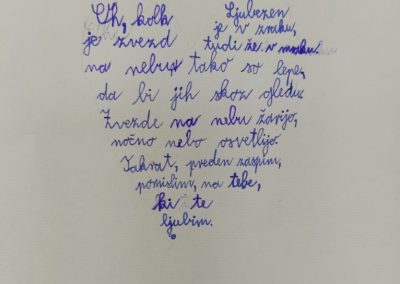 Oh, kolk
je zvezd
Ljubezen
je v zraku,
tudi že v mraku.
na nebu tako so lepe,
da bi jih skoz gledu.
Zvezde na nebu žarijo,
nočno nebo osvetlijo.
Takrat, preden zaspim,
pomislim, na tebe,
ki te
ljubim.